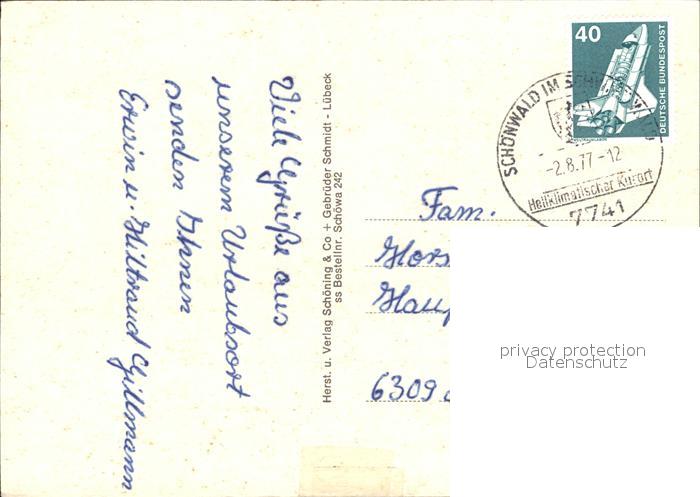 Viele Grüße aus
unserem Urlaubsort
senden Ihnen
Erwin u. Hiltraud Gillmann
Herst. u. Verlag Schöning & Co + Gebrüder Schmidt - Lübeck
ss Bestellnr. Schöwa 242
40
DEUTSCHE BUNDESPOST
SCHÖNWALD IM
-2.8.77-12
Heilklimatischer Kurort
7741
Fam.
Hors
Haup
6309
privacy protection
Datenschutz